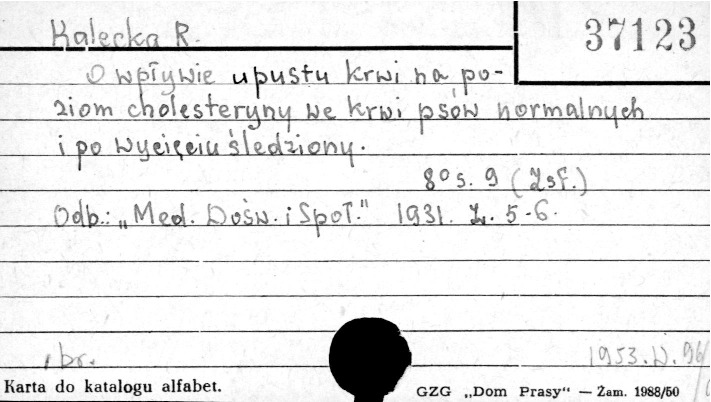 Kalecka R.
37123
O wpływie upustu krwi na po-
ziom cholesteryny we krwi psów normalnych
i po wycięciu śledziony.
8° s. 9 (Zsf.)
Odb.: „Med. Dośw. i Społ." 1931. z. 5-6.
br.
1953. W. 96/
Karta do katalogu alfabet.
GZG „Dom Prasy" — Żam. 1988/50